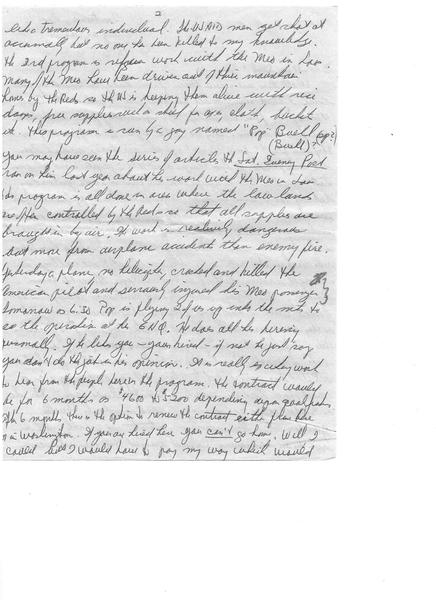 2
is a tremendous individual. The USAID men get shot at
occasionally but no one has been killed to my knowledge.
The 3rd program is refugee work with the Meo in Laos.
Many of the Meo have been driven out of their mountain
homes by the Reds so the US is keeping them alive with rice
drops, free supplies such as cloth, bucket
etc. This program is run by a guy named "Pop" Buell
(Buell)?
You may have seen the series of articles the Sat. Evening Post
ran on him last year about the work with the Meo in Laos
This program is all done in areas where the low lands
are often controlled by the Reds so that all supplies are
brought in by air. The work is relatively dangerous
but more from airplane accidents than enemy fire.
Yesterday a plane, no helicopter, crashed and killed the
American pilot and seriously injured his Meo passenger
Tomorrow at 6:30 Pop is flying 2 of us up into the mts to
see the operation at the HQ. He does all the hiring
personally. If he likes you – you're hired – if not he just says
you don't do the job in his opinion. It is really
to hear from the people here in the program. The contract would
be for 6 months at $4600 to $5200 depending upon
After 6 months there is the option to renew the contract either here
or in Washington. If you are hired here you can't go home. Well I
could but I would have to pay my way which would